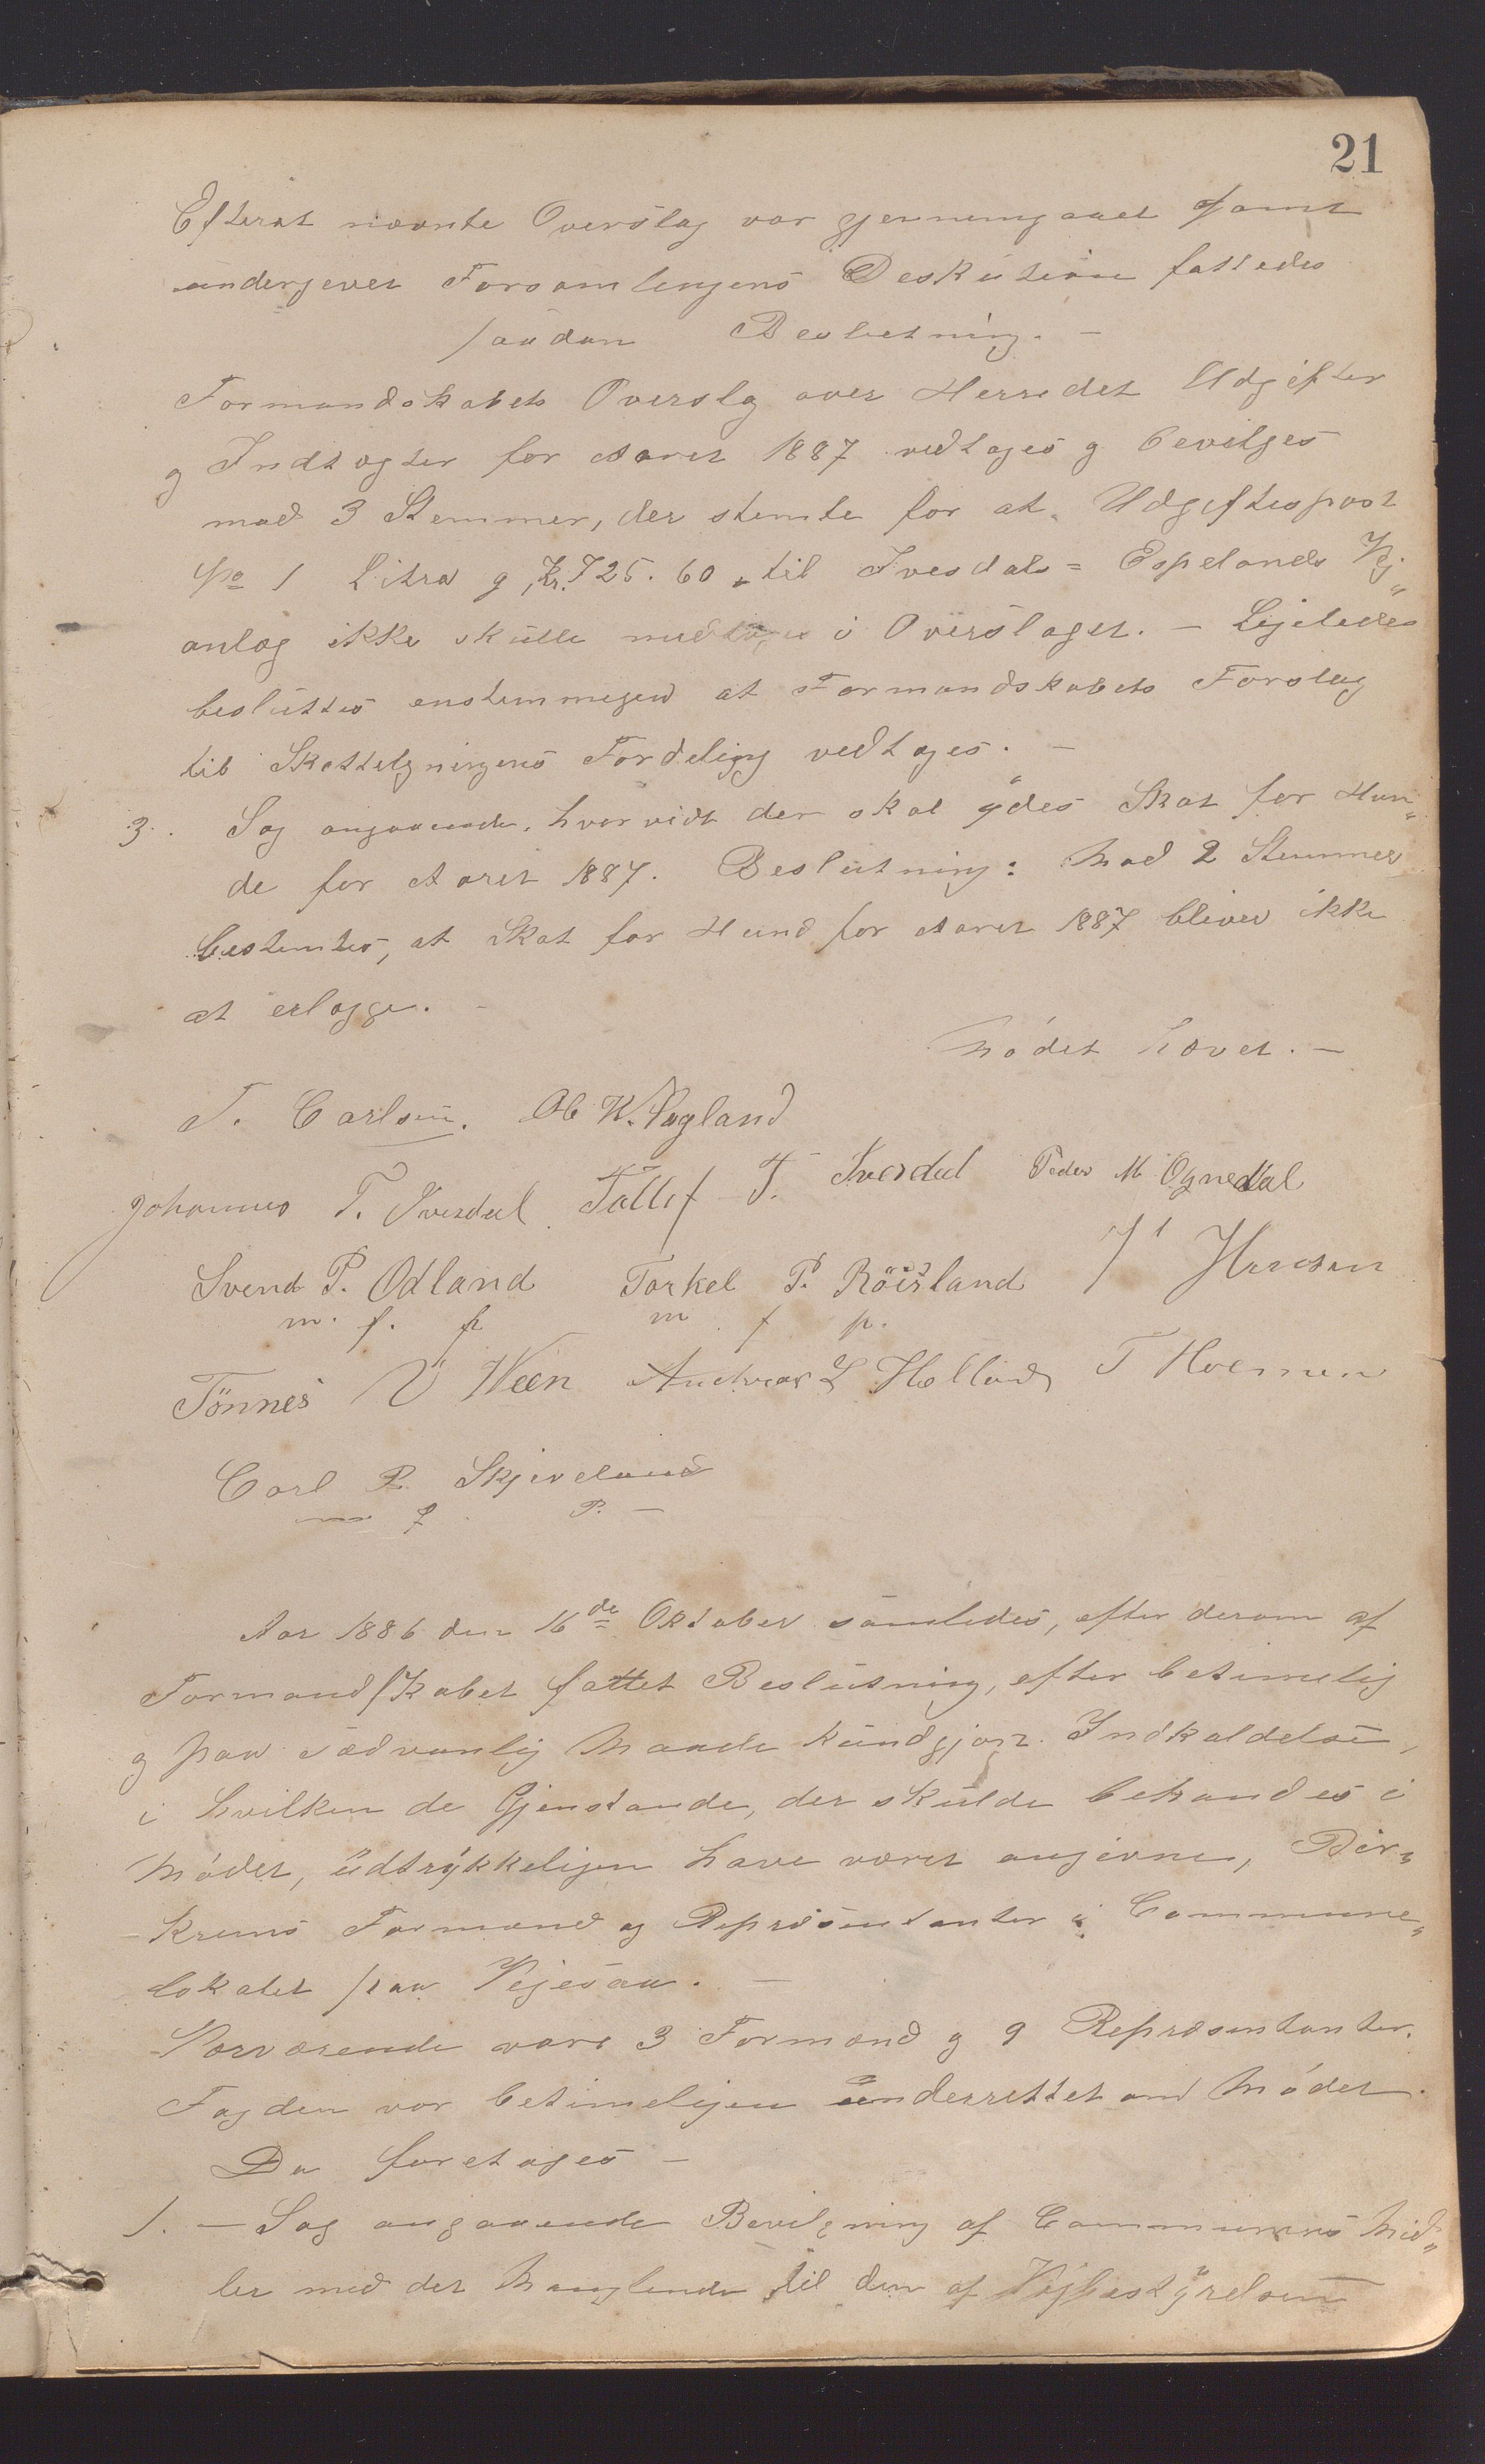 21
Efterat nævnte Overslag var gjennemgaaet samt
undergivet Forsamlingens Deskution fattedes
saadan Beslutning. —
Formandskabets Overslag over Herredet Udgifter
og Indtægter for Aaret 1887 vedtages og bevilges
mod 3 Stemmer, der stemte for at Udgiftspost
No 1 Litra g, Kr. 725.60 til Ivesdal = Espelands Vej„
anlæg ikke skulle medtages i Overslaget. — Ligeledes
besluttes enstemmigen at Formandskabets Forslag
til Skatteligningens Fordeling vedtages. —
3. Sag angaaende, hvorvidt der skal ydes Skat for Hun„
de for Aaret 1887. Beslutning: Mod 2 Stemmer
bestemtes, at Skat for Hund for Aaret 1887 bliver ikke
at erlægge. —
Mödet hævet. —
T. Carlsen. Ole K. Fugland
Johannes T. Ivesdal Tollef T. Ivesdal Peder M Ognedal
Svend P. Odland Torkel P. Röisland Hansen
m. f. p m f p.
Tönnes Veen Andreas L Helland T
Carl R. Skjeveland
m f P. —
Aar 1886 den 16de Oktober samledes, efter derom af
Formandskabet fattet Beslutning, efter betimelig
og paa sædvanlig Maade kundgjort Indkaldelse,
i hvilken de Gjenstande, der skulde behandles i
Mödet, udtrykkeligen have været angivne, Bir„
krems Formænd og Repræsentanter i Commune„
lokalet paa Vigesaa. —
Nærværende vare 3 Formænd og 9 Repræsentanter.
Fogden var betimeligen underrettet om Mödet.
Da foretages —
1. — Sag angaaende Bevilgning af Communens Mid„
ler med det Manglende til den af Vejbestyrelsen